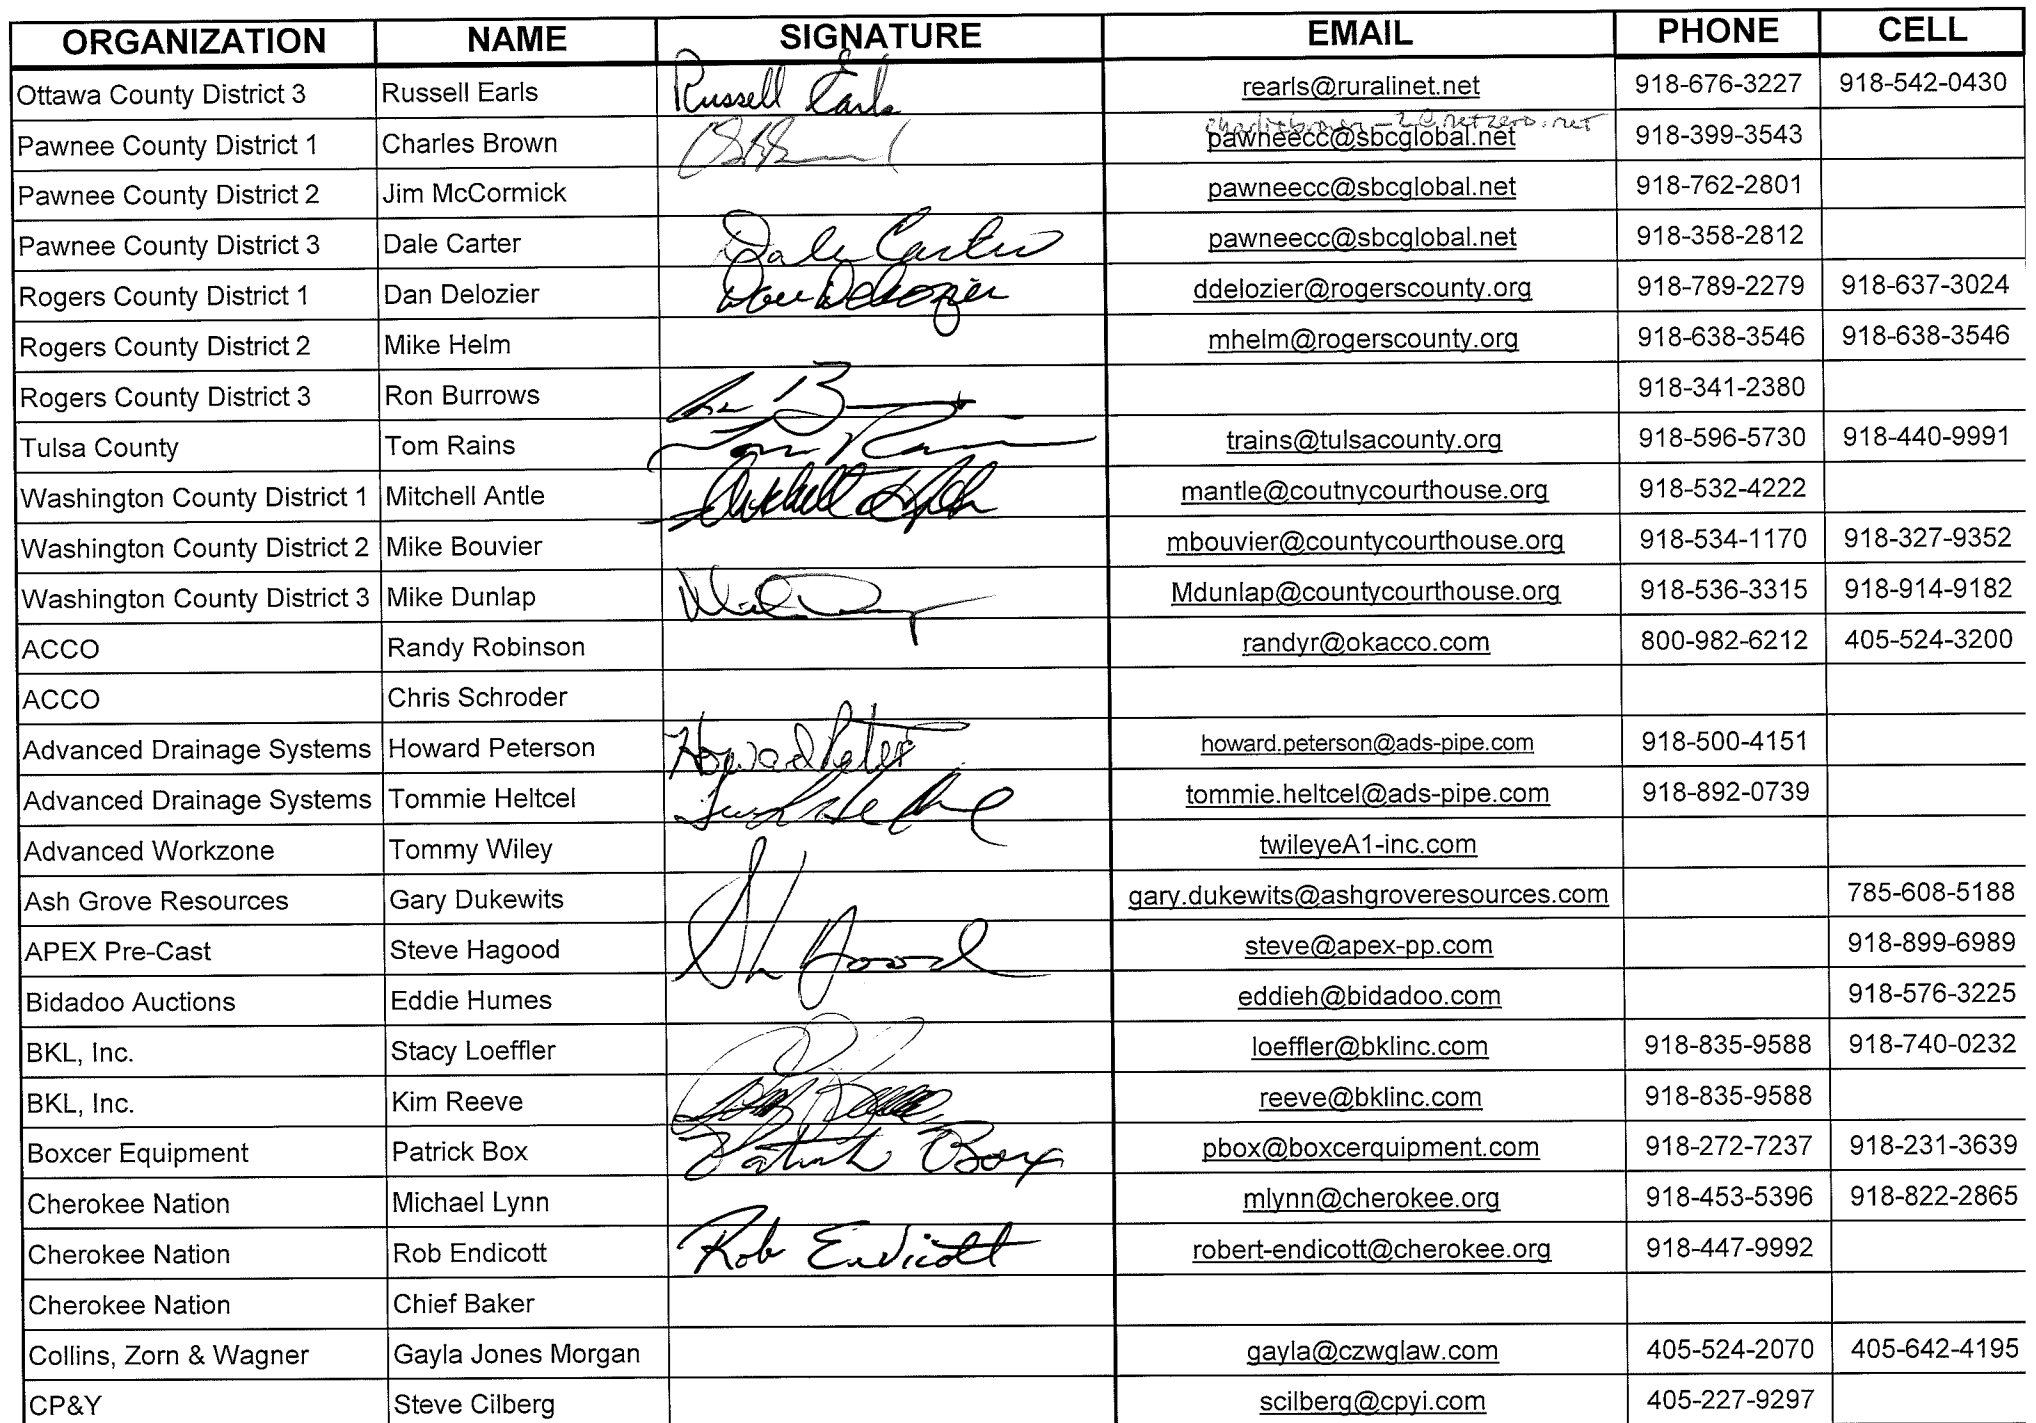 ORGANIZATION NAME SIGNATURE EMAIL PHONE CELL
Ottawa County District 3 Russell Earls Russell Earls rearls@ruralinet.net 918-676-3227 918-542-0430
Pawnee County District 1 Charles Brown pawneecc@sbcglobal.net 918-399-3543
Pawnee County District 2 Jim McCormick pawneecc@sbcglobal.net 918-762-2801
Pawnee County District 3 Dale Carter Dale Carter pawneecc@sbcglobal.net 918-358-2812
Rogers County District 1 Dan Delozier Dan Delozier ddelozier@rogerscounty.org 918-789-2279 918-637-3024
Rogers County District 2 Mike Helm mhelm@rogerscounty.org 918-638-3546 918-638-3546
Rogers County District 3 Ron Burrows 918-341-2380
Tulsa County Tom Rains trains@tulsacounty.org 918-596-5730 918-440-9991
Washington County District 1 Mitchell Antle mantle@coutnycourthouse.org 918-532-4222
Washington County District 2 Mike Bouvier mbouvier@countycourthouse.org 918-534-1170 918-327-9352
Washington County District 3 Mike Dunlap Mdunlap@countycourthouse.org 918-536-3315 918-914-9182
ACCO Randy Robinson randyr@okacco.com 800-982-6212 405-524-3200
ACCO Chris Schroder
Advanced Drainage Systems Howard Peterson Howard Peter howard.peterson@ads-pipe.com 918-500-4151
Advanced Drainage Systems Tommie Heltcel tommie.heltcel@ads-pipe.com 918-892-0739
Advanced Workzone Tommy Wiley twileyeA1-inc.com
Ash Grove Resources Gary Dukewits gary.dukewits@ashgroveresources.com 785-608-5188
APEX Pre-Cast Steve Hagood steve@apex-pp.com 918-899-6989
Bidadoo Auctions Eddie Humes eddieh@bidadoo.com 918-576-3225
BKL, Inc. Stacy Loeffler loeffler@bklinc.com 918-835-9588 918-740-0232
BKL, Inc. Kim Reeve reeve@bklinc.com 918-835-9588
Boxcer Equipment Patrick Box Patrick Box pbox@boxcerquipment.com 918-272-7237 918-231-3639
Cherokee Nation Michael Lynn mlynn@cherokee.org 918-453-5396 918-822-2865
Cherokee Nation Rob Endicott Rob Endicott robert-endicott@cherokee.org 918-447-9992
Cherokee Nation Chief Baker
Collins, Zorn & Wagner Gayla Jones Morgan gayla@czwglaw.com 405-524-2070 405-642-4195
CP&Y Steve Cilberg scilberg@cpyi.com 405-227-9297